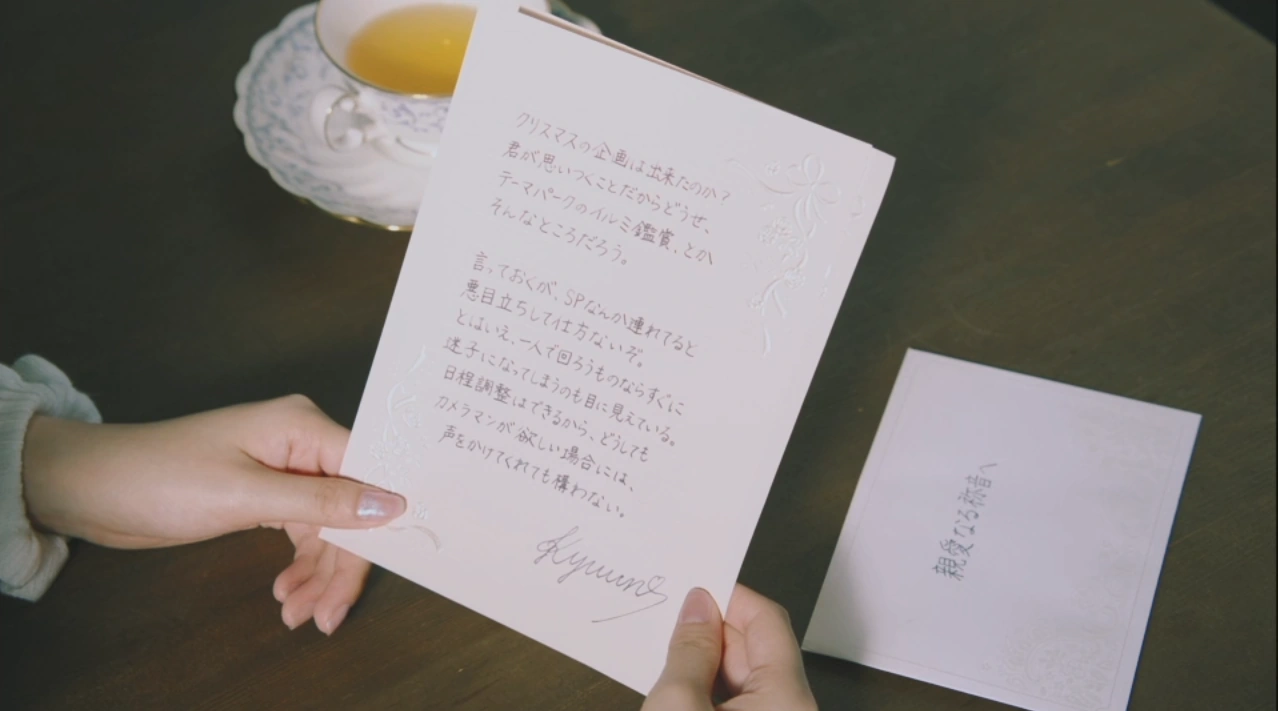 クリスマスの企画は出来たのか?
君が思いつくことだからどうせ、
テーマパークのイルミ鑑賞、とか
そんなところだろう。
言っておくが、SPなんか連れてると
悪目立ちして仕方ないぞ。
とはいえ、一人で回ろうものならすぐに
迷子になってしまうのも目に見えている。
日程調整はできるから、どうしても
カメラマンが欲しい場合には、
声をかけてくれても構わない。
親愛なる祢音へ